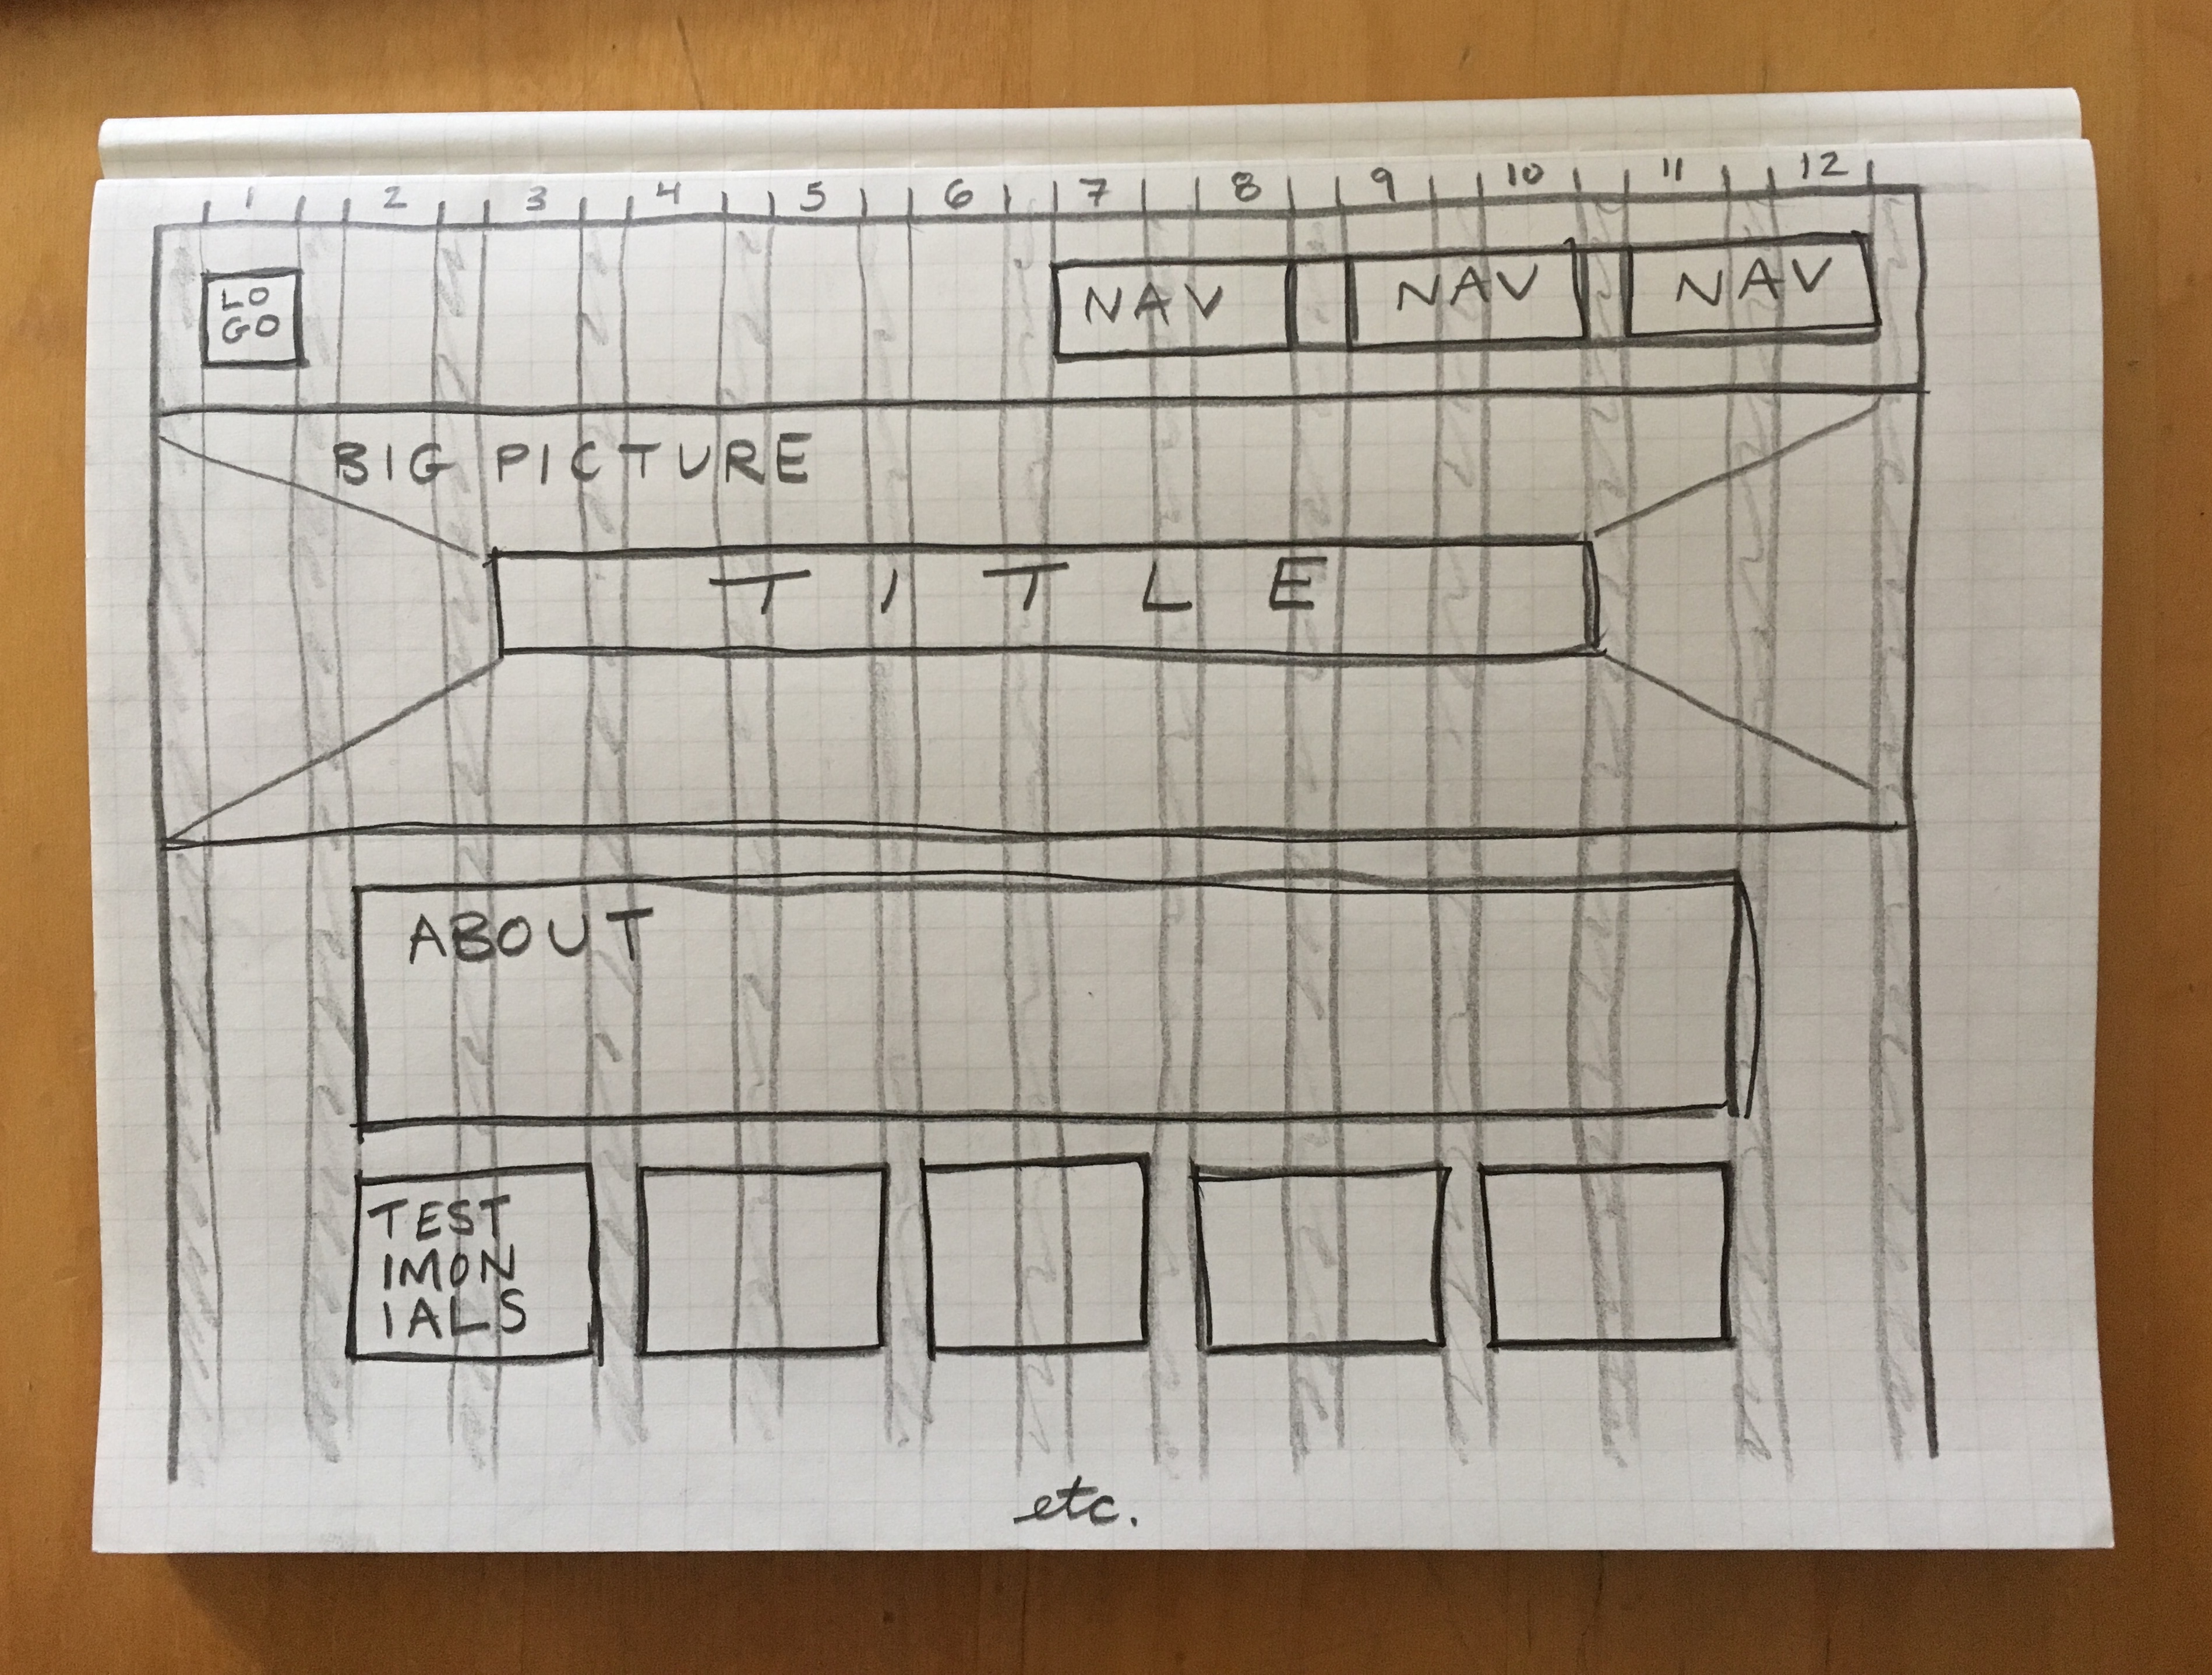 1 2 3 4 5 6 7 8 9 10 11 12
LO
GO
NAV NAV NAV
BIG PICTURE
TITLE
ABOUT
TEST
IMON
IALS
etc.